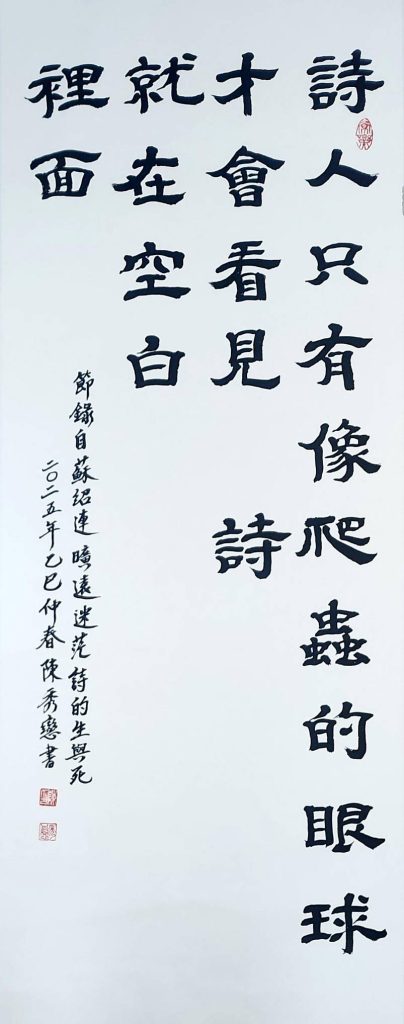 詩人只有像爬蟲的眼球
才會看見　詩
就在空白
裡面
節錄自蘇紹連曠遠迷茫詩的生與死
二〇二五年乙巳仲春陳秀戀書